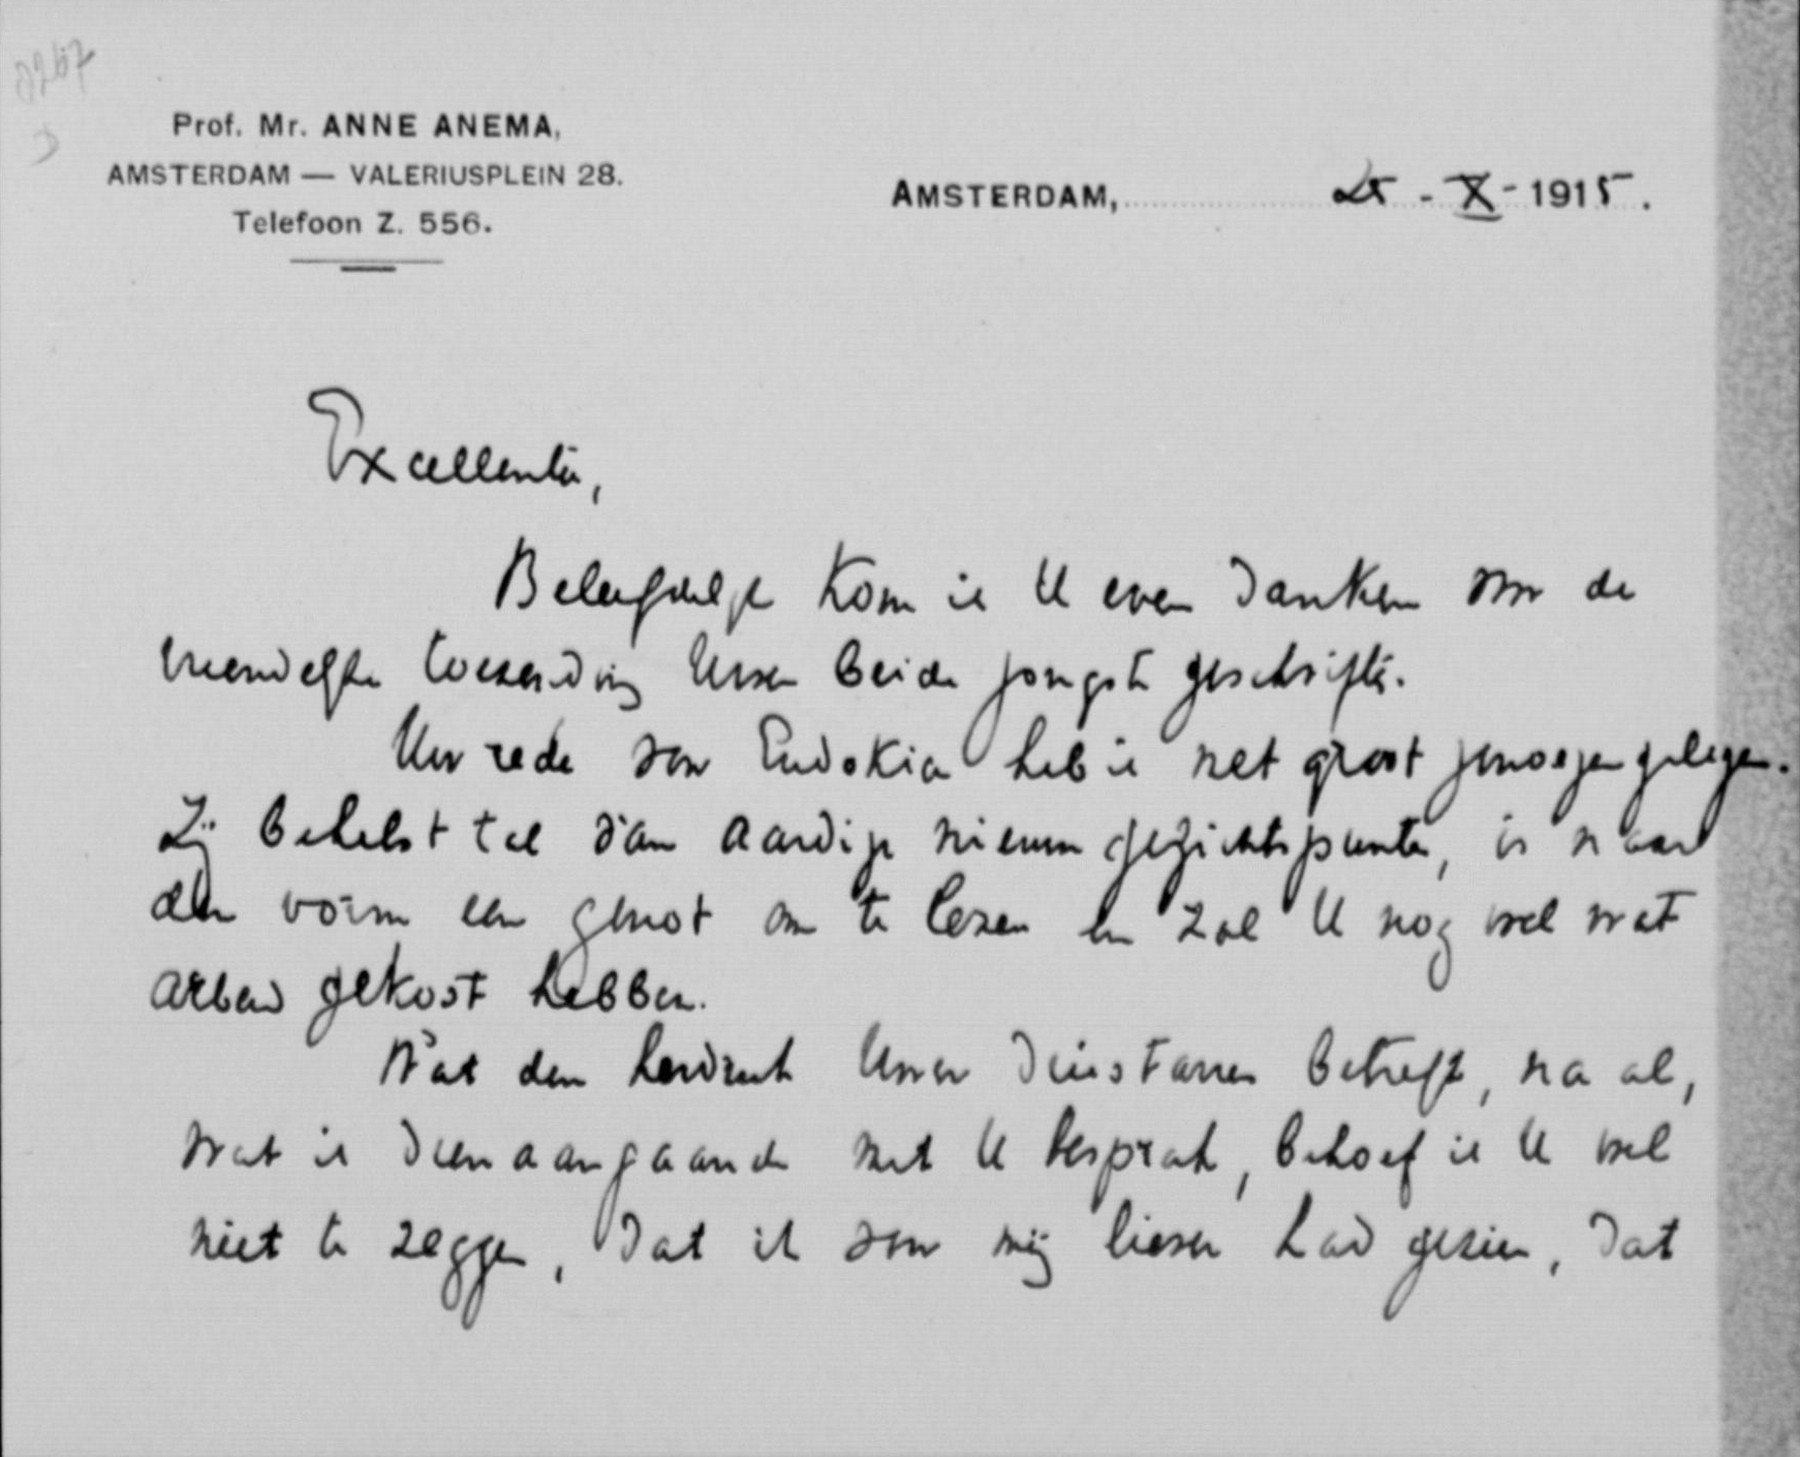 8267
Prof. Mr. ANNE ANEMA,
AMSTERDAM — VALERIUSPLEIN 28.
Telefoon Z. 556.
AMSTERDAM, 25 - X - 1915.
Excellentie,
Beleefdelijk kom ik U even danken voor de
vriendelijke toezending Uwer beide jongste geschriften.
Uw rede over Eudokia heb ik met groot genoegen gelezen.
Zij behelst tal van aardige nieuwe gezichtspunten, is naar
den vorm een genot om te lezen en zal U nog wel wat
arbeid gekost hebben.
Wat den herdruk Uwer Driestarren betreft, na al,
wat ik dienaangaande met U besprak, behoef ik U wel
niet te zeggen, dat ik voor mij liever had gezien, dat